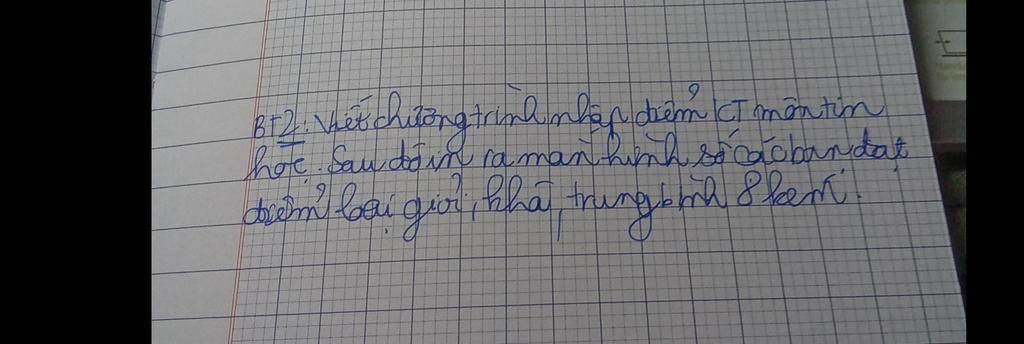 BT2: Viết chương trình nhập điểm KT môn tin
học. Sau đó in ra màn hình số các bạn đạt
điểm loại giỏi, khá, trung bình & kém.